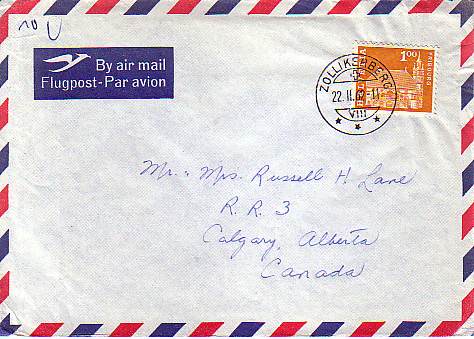 10
By air mail
Flugpost-Par avion
HELVETIA
1.00
FRIBOURG
ZOLLIKERBERG
22.II.63-11
VIII
Mr. & Mrs. Russell H. Lane
R. R. 3
Calgary, Alberta
Canada